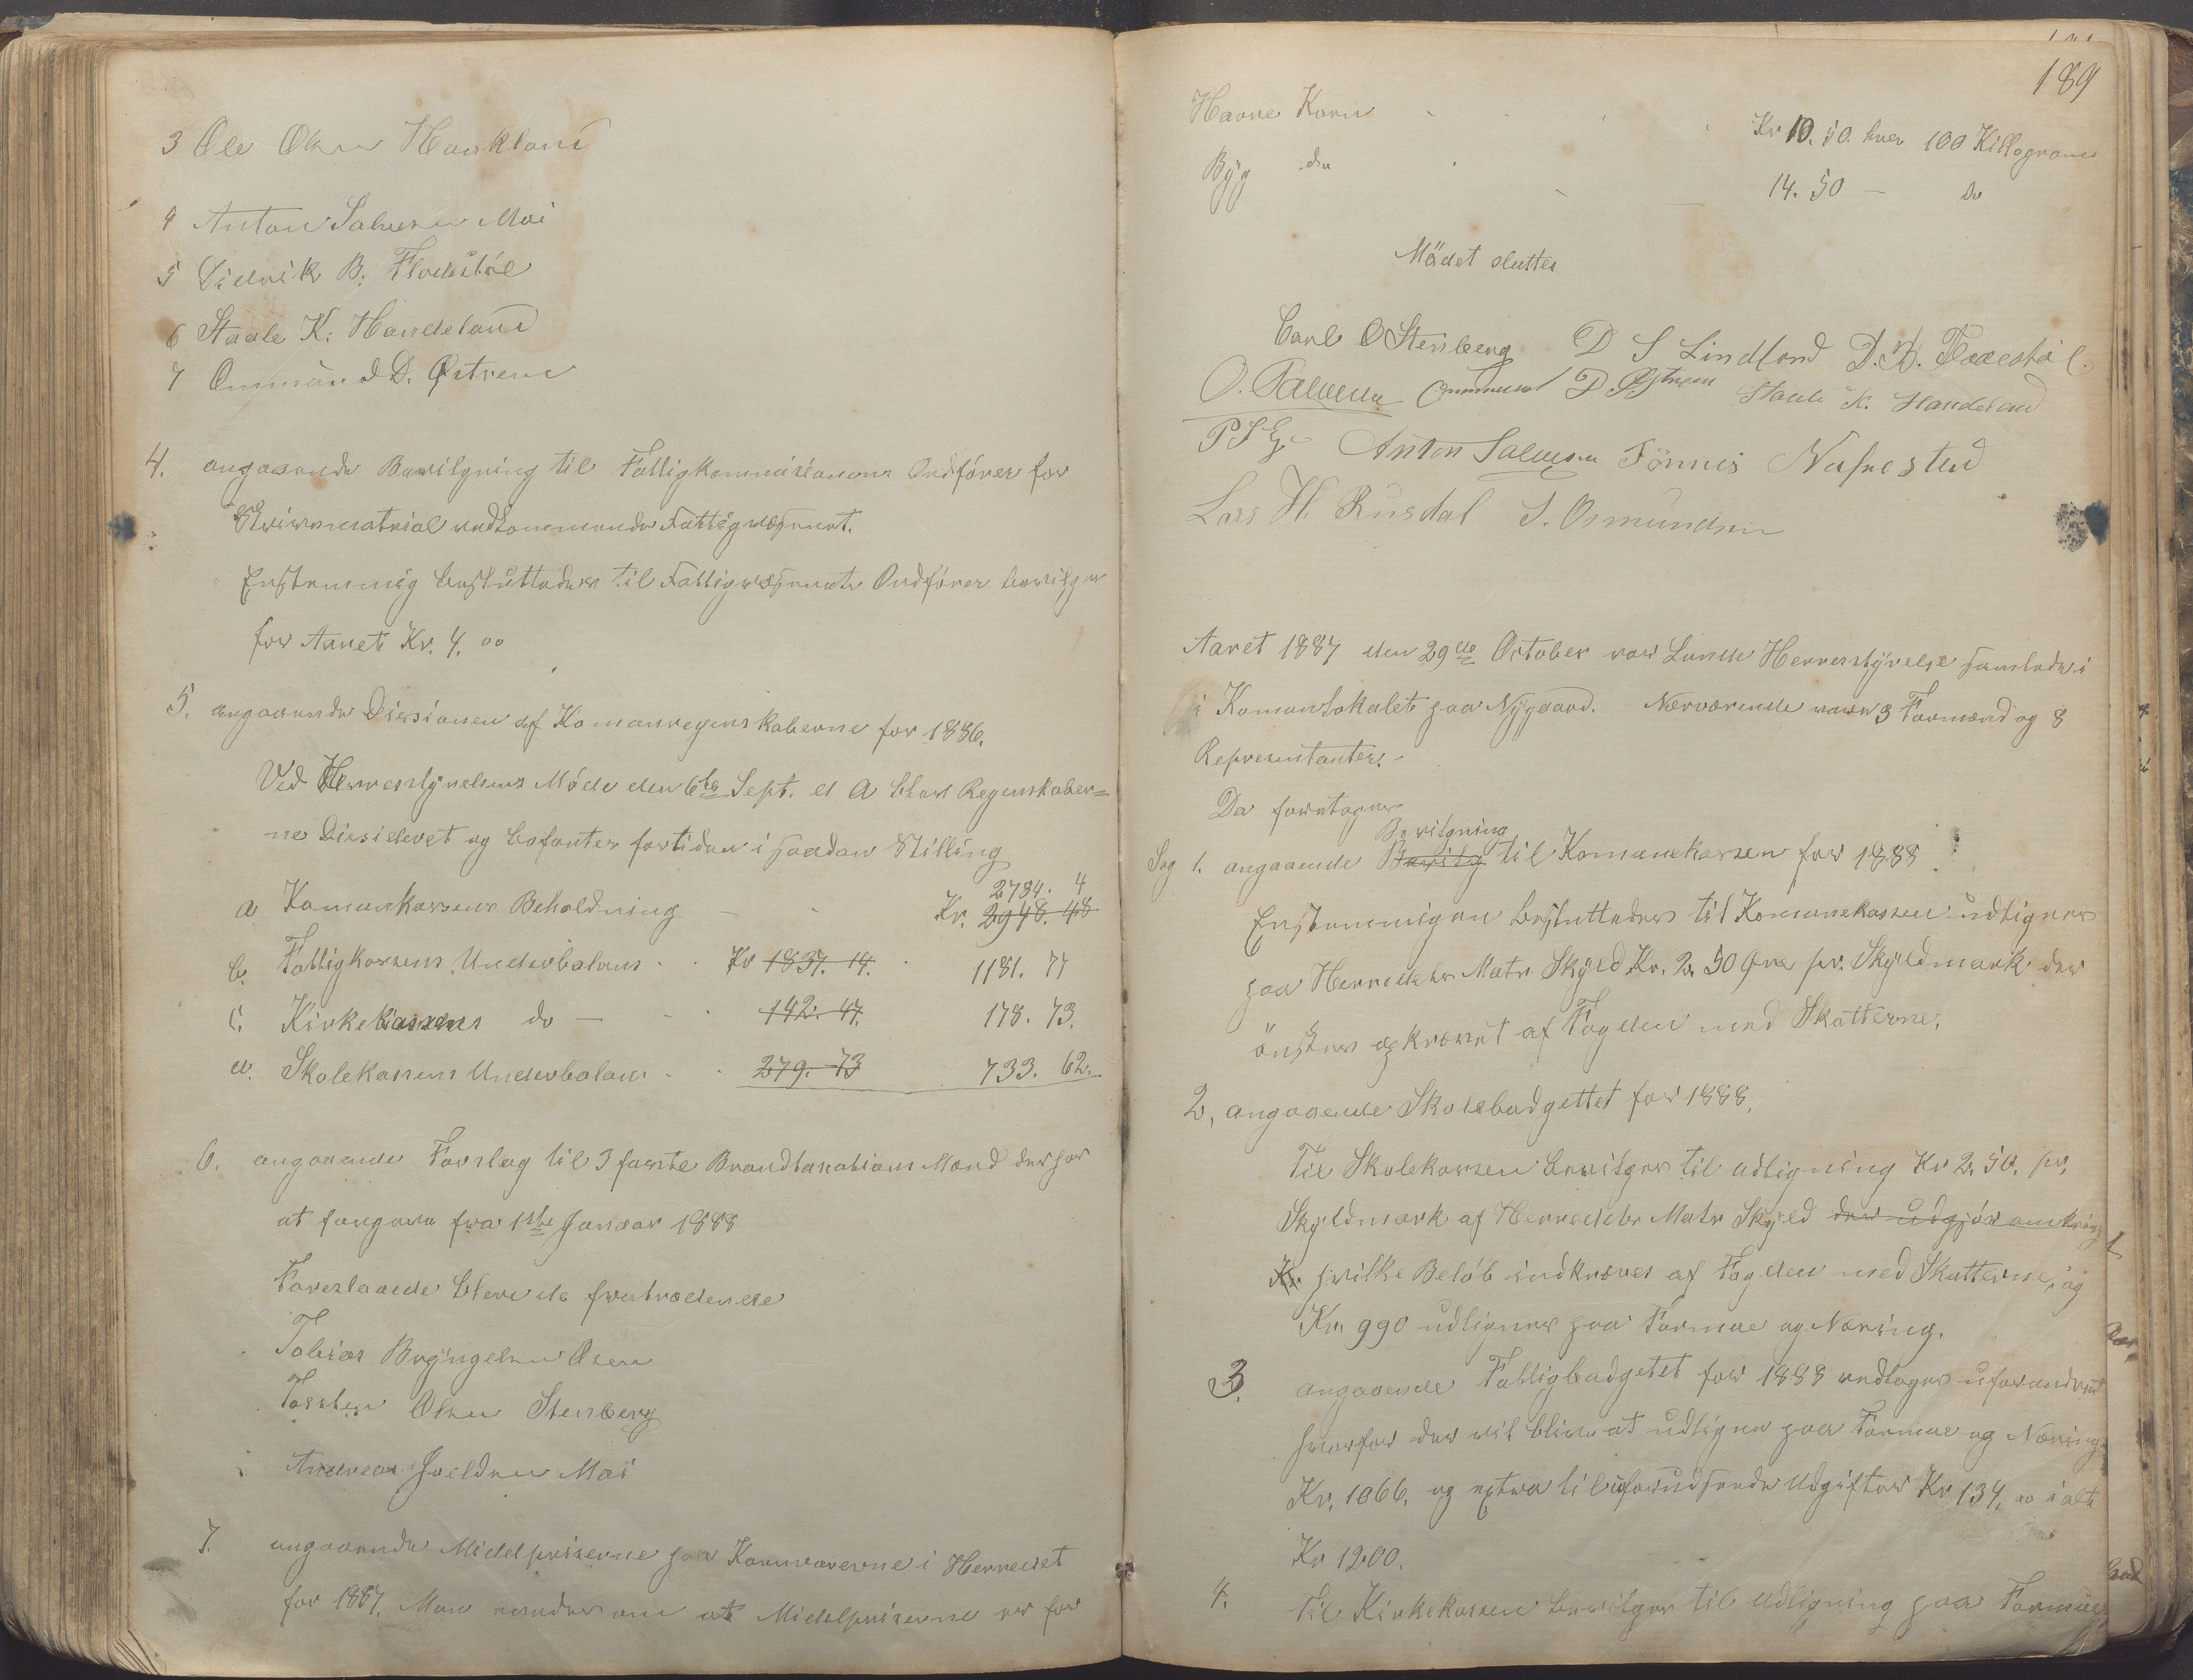 3 Ole Olsen Haukland
4 Anton Salvesen Moi
5 Didrik B. Flodestøl
6 Staale K. Handeland
7 Ommund D. Østrem
4. angaaende Bevilgning til Fattigkommisionens Ordfører for
Skrivematrial vedkommende Fattigvæsenet.
Enstemmig besluttedes til Fattigvæsenets Ordfører bevilges
for Aaret Kr. 4.00
5. angaaende Disisionen af Komuneregenskaberne for 1886.
Ved Herrestyrelsens Møde den 6te Sept. d A blev Regenskaber=
ne Disideret og befantes fortiden i saadan Stilling
a Komunkassens Beholdning Kr. 2948. 48 2784. 4
b. Fattigkassens Underbalans Kr 1837. 14. 1181. 77
c. Kirkekassens do 142. 47. 178. 73.
d. Skolekassens Underbalans 279. 73 733. 62.
6. angaaende Forslag til 3 faste Brandtaxations Mænd der har
at fungere fra 1ste Januar 1888
Foreslaaede bleve de fratrædende
Tobias Bryngelsen Osen
Torsten Olsen Stenberg
Andreas Joeldsen Moi
7. angaaende Middelpriserne paa Kornvarerne i Herredet
for 1887. Man enedes om at Middelpriserne er for
189
Havre Korn Kr 10.50. hver 100 Killogram
Byg do 14.50 — Do
Mödet sluttes
Carl O Stenberg D S Lindland D. B. Flodestøl.
O. Salvesen Ommund D Østrem Staale K. Handeland
P J Eg Anton Salvesen Tönnes Nesvested
Lars H. Rusdal S. Osmundsen
Aaret 1887 den 29de October var Lunde Herrestyrelse samlede i
i Komunlokalet paa Nygaard. Nærværende var 3 Formænd og 8
Representanter.
Da foretoges
Bevilgning
Sag 1. angaaende Bevilg til Komunekassen for 1888
Enstemmigen besluttedes til Komunekassen udlignes
paa Herredets Matr Skyld Kr. 2. 50 Øre pr. Skyldmark der
önskes opkrævet af Fogden med Skatterne.
2, angaaende Skolebudgettet for 1888.
Til Skolekassen bevilges til udligning Kr 2. 50. pr.
Skyldmark af Herredets Matr Skyld der udgjör omkring
Kr hvilke Beløb indkræves af Fogden med Skatterne, og
Kr. 990 udlignes paa Formue og Næring.
3. angaaende Fattigbudgetet for 1888 vedtages uforandret
hvorfor der vil blive at udligne paa Formue og Næring
Kr. 1066. og extra til uforudseede Udgifter Kr 134, 00 i alt
Kr 1200.
4. Til Kirkekassen bevilges til Udligning paa Formue